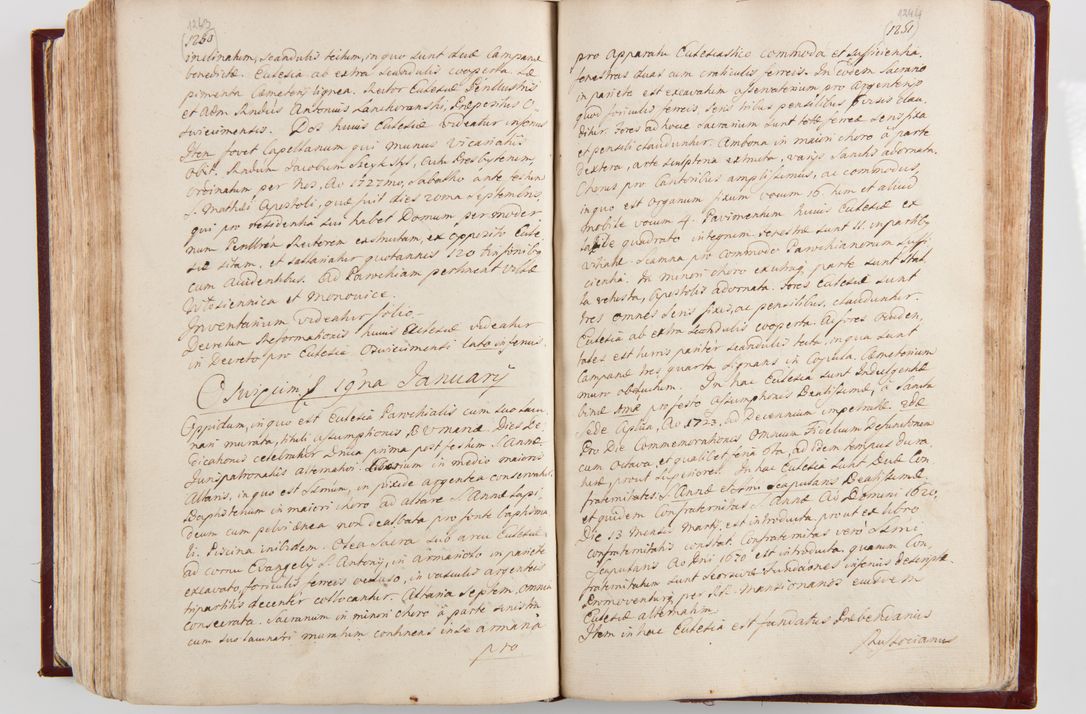 1263
(1250
inclinatum, scandulis tectum, in quo sunt duæ Campanæ
benedictæ. Ecclesia ab extra scandulis cooperta. Sæ
pimenta Cæmeterij lignea. Rector Ecclesiæ Perillustris
et Adm Rndus Antonius Lanckoronski, Præpositus O-
swiecimensis. Dos huius Ecclesiæ videatur inferius
Item fovet Capellanum qui munus Vicariatus
obit. Rndum Jacobum
ordinatum per Nos, Ao 1727mo, Sabatho ante festum
S. Mathæi Apostoli, quæ fuit dies 20ma Septembris,
qui pro residentia sui habet Domum per moder
num Perillrem Rectorem exstructam, ex opposito Eccle
siæ sitam, et sallariatur quotannis 120 tinfonibus
cum accidentibus. Ad Parochiam pertinent villæ
et Monovice.
Inventarium videatur folio
Decretum Reformationis huius Ecclesiæ videatur
in Decreto pro Ecclesia Oswiecimensi lato inferius.
Oswięcim, Januarij
Oppidum, in quo est Ecclesia Parochialis cum suo Sacra
rio murata, tituli Assumptionis B V Mariæ Dies De
dicationis celebratur Dnica prima post festum S. Annæ.
Jurispatronatus alternativi. Ciborium in medio maioris
Altaris, in quo est SSmum, in pixide argentea conservatur.
Baptisterium in maiori choro ad altare S. Annæ lapi
deum cum pelvi ænea non dealbata pro fonte baptisma
li. Piscina inibidem. Olea Sacra sub arcu Ecclesiæ
ad cornu Evangelij S. Antonij, in armariolo in pariete
excavato, foriculis ferreis occluso, in vasculis argenteis
tripartitis decenter collocantur. Altaria septem, omnia
consecrata. Sacrarium in minori choro à parte sinistra
cum suo lacunari muratum continens in se armaria
pro
1264
(1251
pro Apparatu Ecclesiastico commoda et sufficientia,
fenestras duas cum craticulis ferreis. In eodem Sacrario
in pariete est excavatum asservatorium pro Argenteria
quod foriculis ferreis, seris tribus pensilibus firmis clau
ditur. Fores ad hocce Sacrarium sunt totæ ferreæ sera fixa
et pensili clauduntur. Ambona in maiori choro à parte
dextera, arte sculptoria extructa, varijs Sanctis adornata.
Chorus pro Cantoribus amplissimus, ac commodus,
in quo est Organum fixum vocum 16. tum et aliud
mobile vocum 4. Pavimentum huius Ecclesiæ ex
lapide quadrato integrum, fenestræ sunt 11. in partibus
vitriatæ. Scamna pro commodo Parochianorum suffi
cientia. In minori choro ex utraq parte sunt stal
la vetusta, Apostolis adornata. Fores Ecclesiæ sunt
tres omnes seris fixis, ac pensilibus, clauduntur.
Ecclesia ab extra scandulis cooperta. Ad fores occiden,
tales est turris pariter scandulis tecta, in qua sunt
Campanæ tres quarta signans in Copula. Cæmeterium
muro obductum. In hac Ecclesia sunt Indulgentiæ
binæ 1mæ pro festo Assumptionis Beatissimæ, à Sancta
Sede Aplica, Ao 1723. ad Decennium impetratæ. 2dæ
Pro Die Commemorationis Omnium Fidelium Defunctorum
cum Octava, et qualibet feria 6ta, ad idem tempus dura
turæ, prout superiores. In hac Ecclesia sunt Duæ Con
fraternitates, S. Annæ et Smi Scapularis Beatissimæ,
et quidem Confraternitas S. Annæ Ao Domini 1620,
Die 13 Mensis Martij est introducta, prout ex libro
confraternitatis constat. Confraternitas verò SSmi
Scapularis Ao Dni 1670 est introducta, quarum Con,
fraternitatum sunt seorsivæ Fundationes inferius descriptæ.
Promoventur per RR. Mansionarios eiusdem
Ecclesiæ alternatim.
Item in hac Ecclesia est fundatus Præbendarius